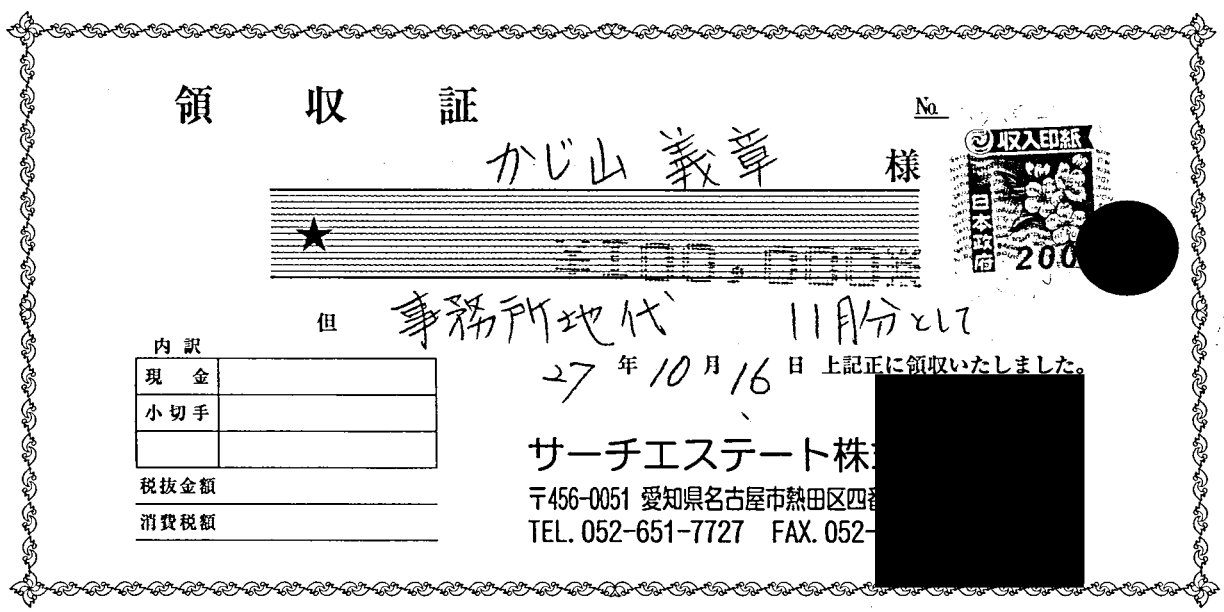 領収証
No.
かじ山 義章 様
収入印紙
日本政府
200
★ ¥100,000※
但 事務所地代 11月分として
27年10月16日 上記正に領収いたしました。
内訳
現金
小切手
税抜金額
消費税額
サーチエステート株
〒456-0051 愛知県名古屋市熱田区四番
TEL.052-651-7727 FAX.052-